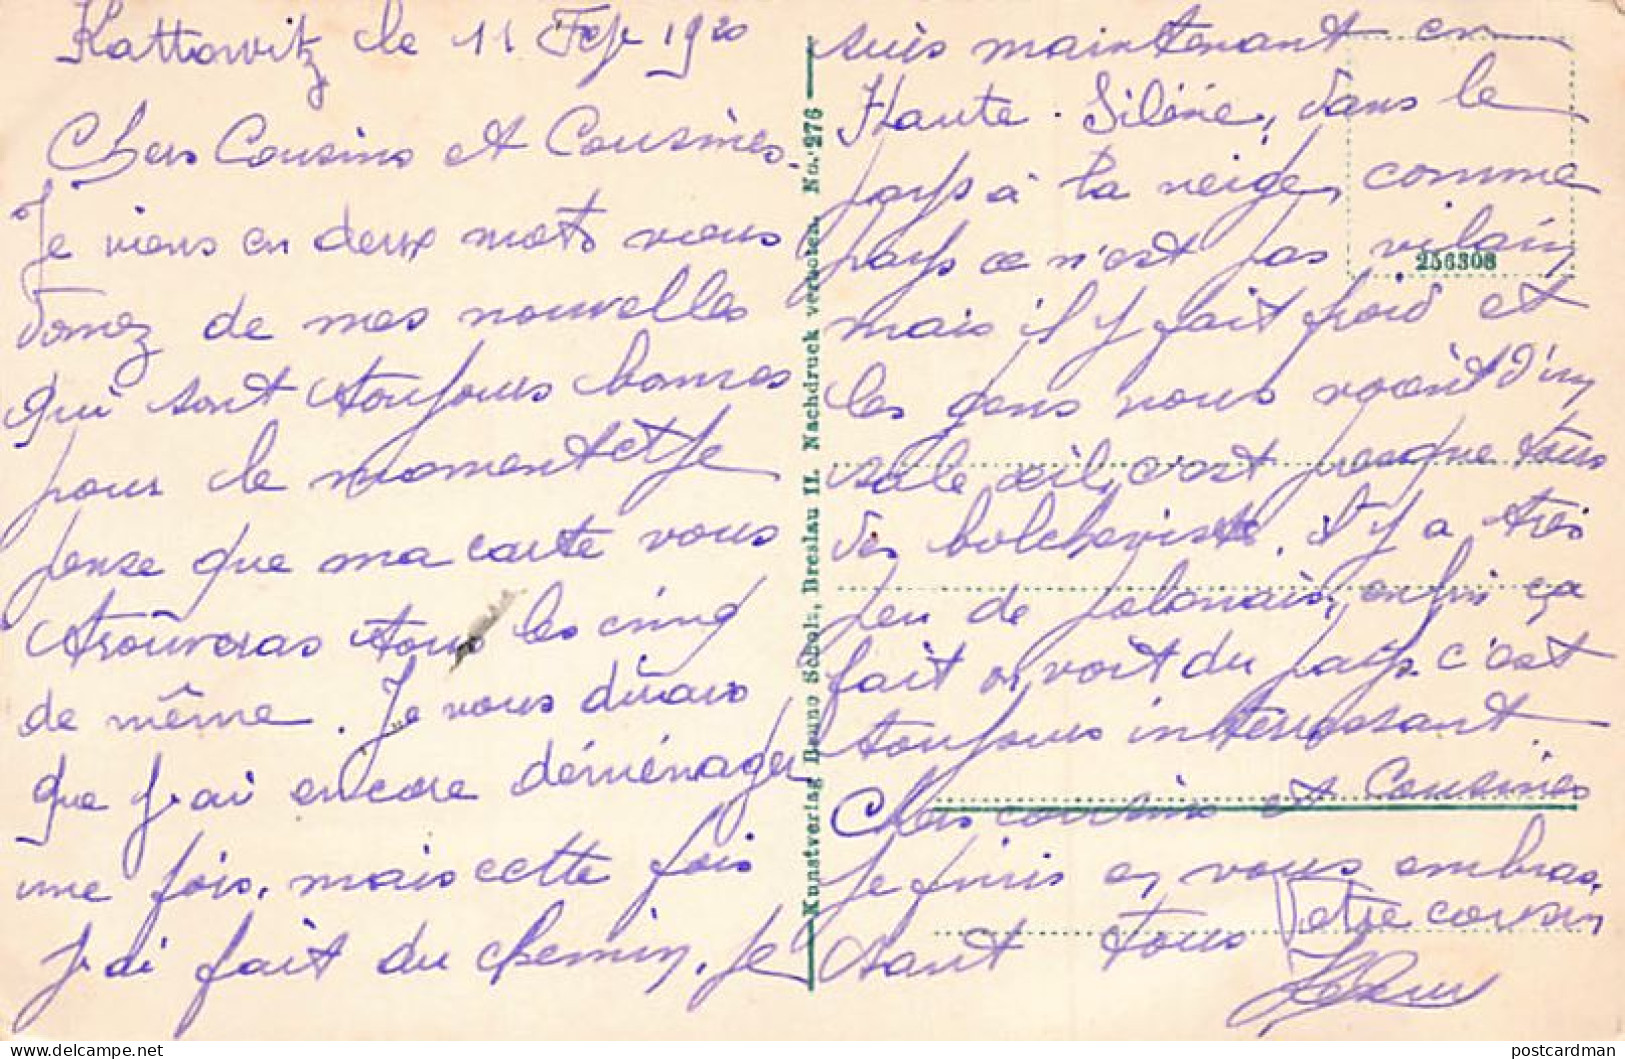 Kattowitz le 11 Fev 1920
Chers Cousins et Cousines.
Je viens en deux mots vous
donnez de mes nouvelles
qui sont toujours bonnes
pour le moment et je
pense que ma carte vous
trouveras tous les cinq
de même. Je vous dirais
que j'ai encore déménager
une fois, mais cette fois
j'ai fait du chemin, je
suis maintenant en
Haute-Silésie, dans le
pays à la neige, comme
pays ce n'est pas vilain
mais il y fait froid et
les gens nous voient d'un
sale œil, c'est presque tous
des bolcheviste, il y a très
peu de polonais, enfin ça
fait on voit du pays c'est
toujours interressant.
Chers cousins et Cousines
Je finis en vous embras-
sant tous Votre cousin
Kunstverlag Bruno Scholz, Breslau II. Nachdruck verboten. No. 276
256308
postcardman